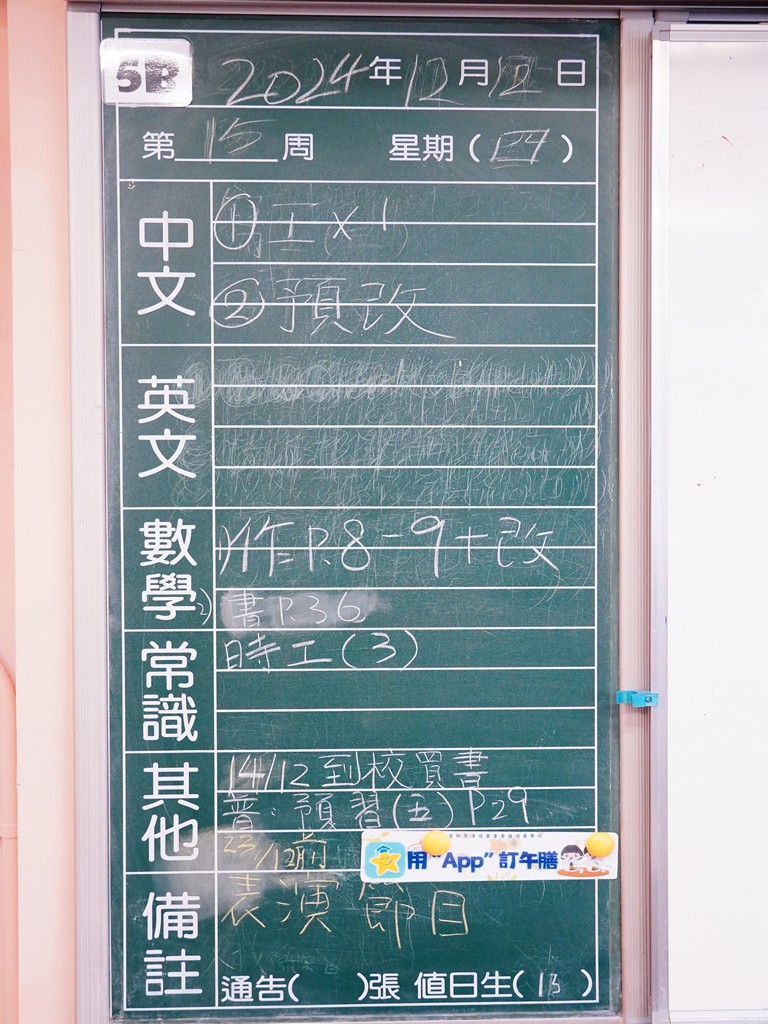 5B 2024年12月12日
第15周 星期(四)
中文
① 工×1
② 預改
英文
數學
1)作P.8-9+改
2)書P.36
常識
時工(3)
其他
14/12到校買書
普.預習(五)P29
23/12前
用“App”訂午膳
備註
表演節目
通告( )張 值日生(13)